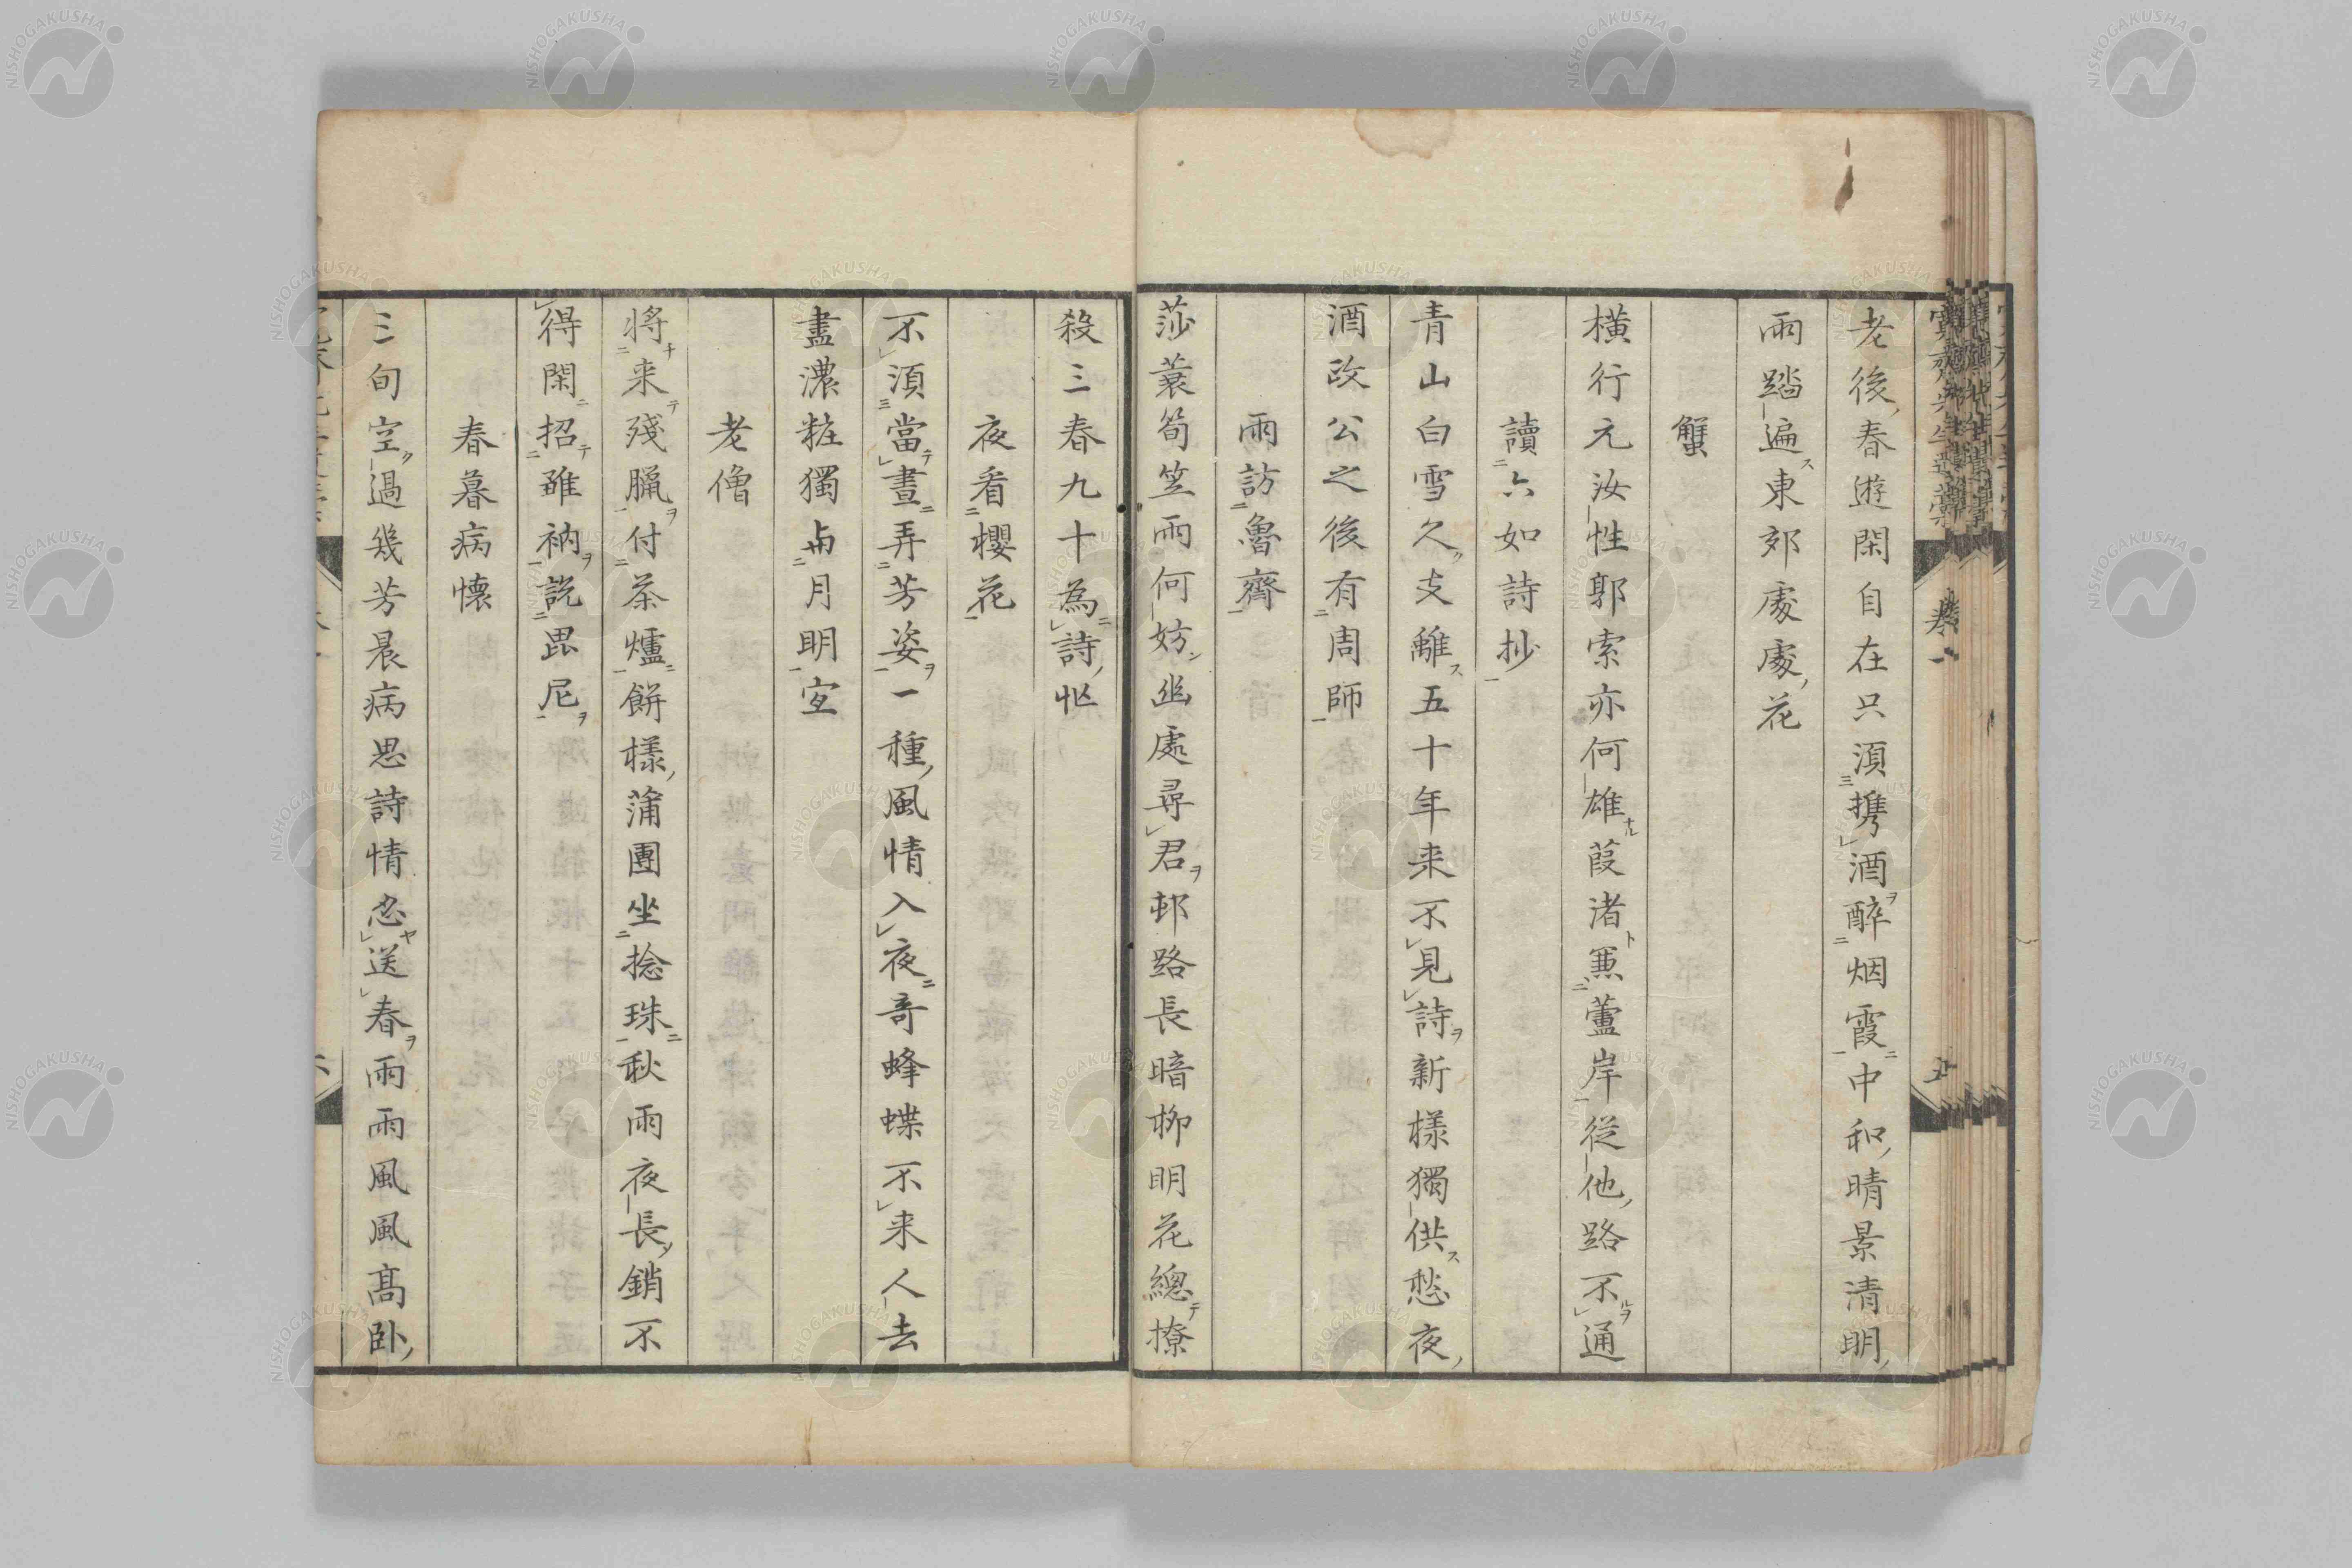 老後春遊閑自在只須携酒醉烟霞中和晴景清明
雨踏遍東郊處處花
蟹
橫行元汝性郭索亦何雄葭渚兼蘆岸從他路不通
讀六如詩抄
青山白雪久支離五十年来不見詩新樣獨供愁夜
酒改公之後有周師
雨訪魯齊
莎蓑筍笠雨何妨幽處尋君邨路長暗柳明花總撩
殺三春九十為詩忙
夜看櫻花
不須當晝弄芳姿一種風情入夜奇蜂蝶不来人去
盡濃粧獨与月明宜
老僧
将来殘臘付茶爐餅樣蒲團坐捻珠秋雨夜長銷不
得閑招雖衲説毘尼
春暮病懷
三旬空過幾芳晨病思詩情忍送春雨雨風風髙卧
卷一
五
NISHOGAKUSHA